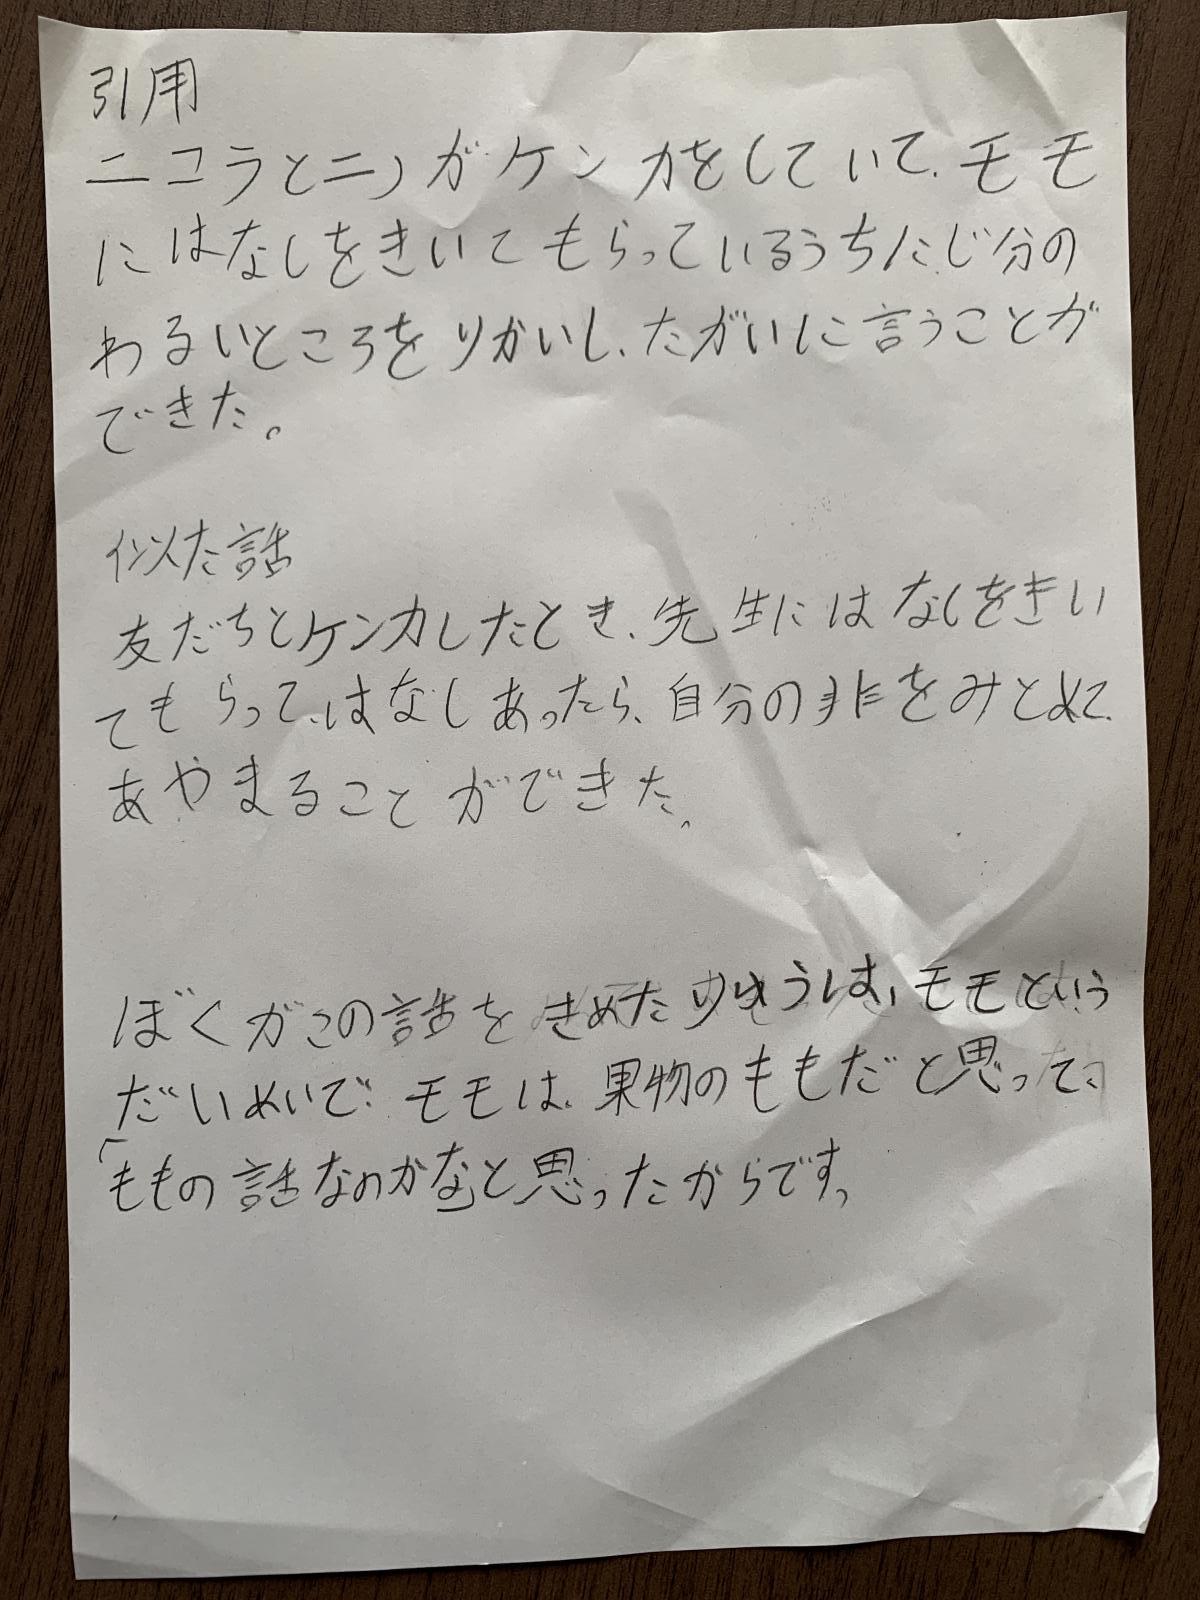 引用
ニコラとニノがケンカをしていて、モモ
にはなしをきいてもらっているうちにじ分の
わるいところをりかいし、たがいに言うことが
できた。
似た話
友だちとケンカしたとき、先生にはなしをきい
てもらって、はなしあったら、自分の非をみとめて、
あやまることができた。
ぼくがこの話をきめたりゆうは、モモという
だいめいで、モモは、果物のももだと思って、
「ももの話なのかな」と思ったからです。